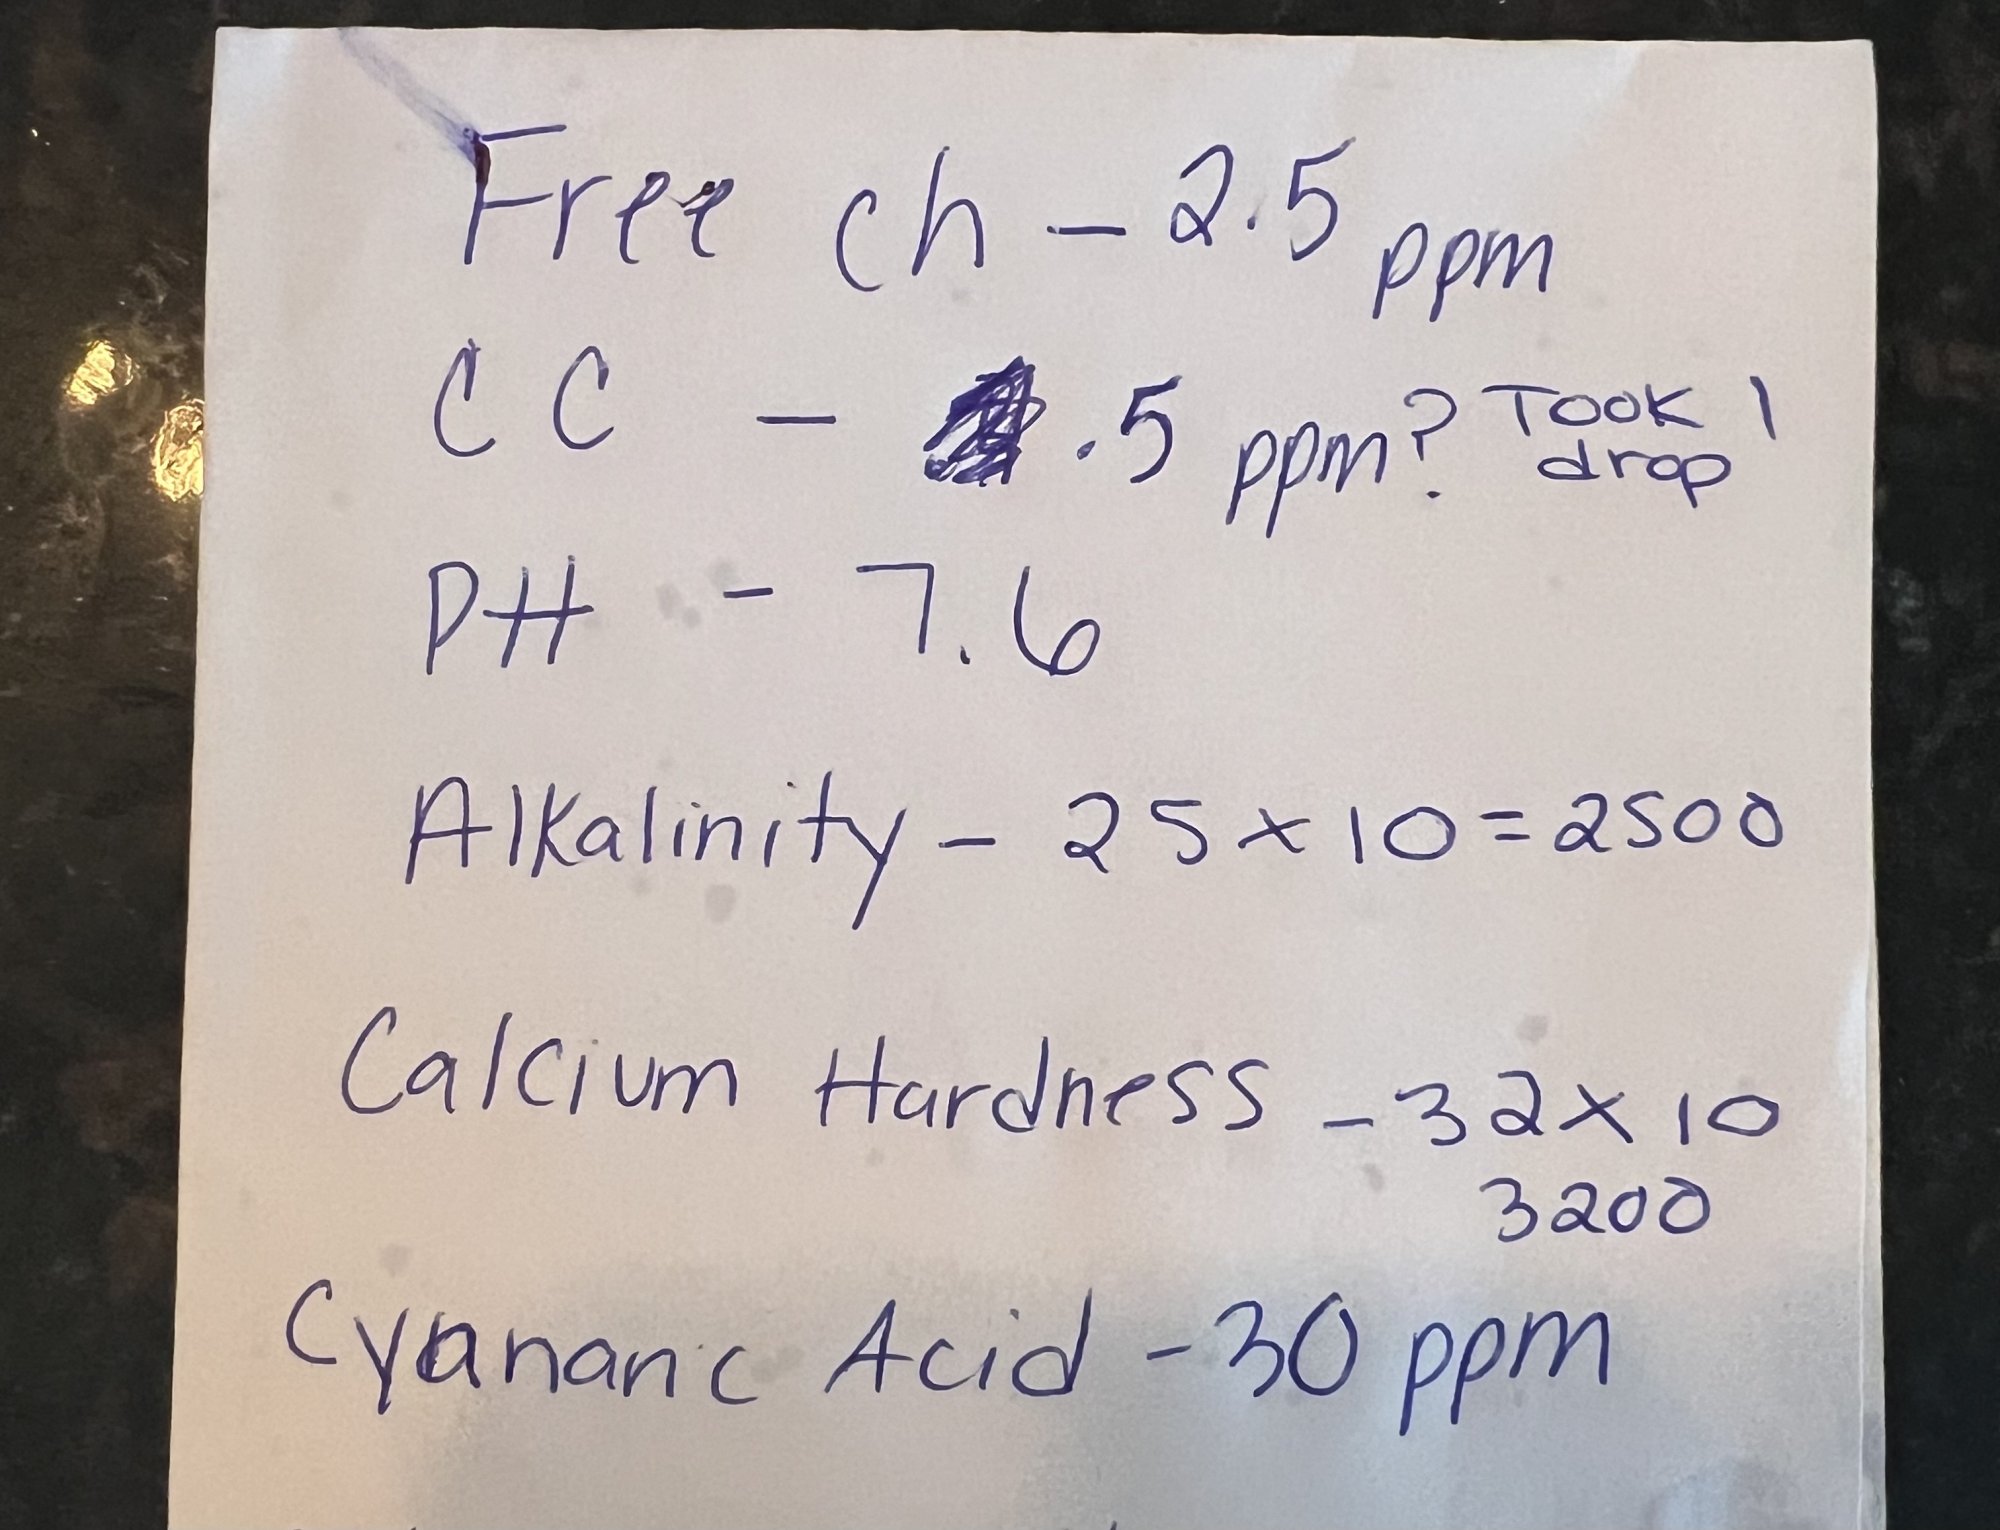 Free ch - 2.5 ppm
CC - .5 ppm? Took 1 drop
PH - 7.6
Alkalinity - 25 x 10 = 2500
Calcium Hardness - 32 x 10
3200
Cyananc Acid - 30 ppm